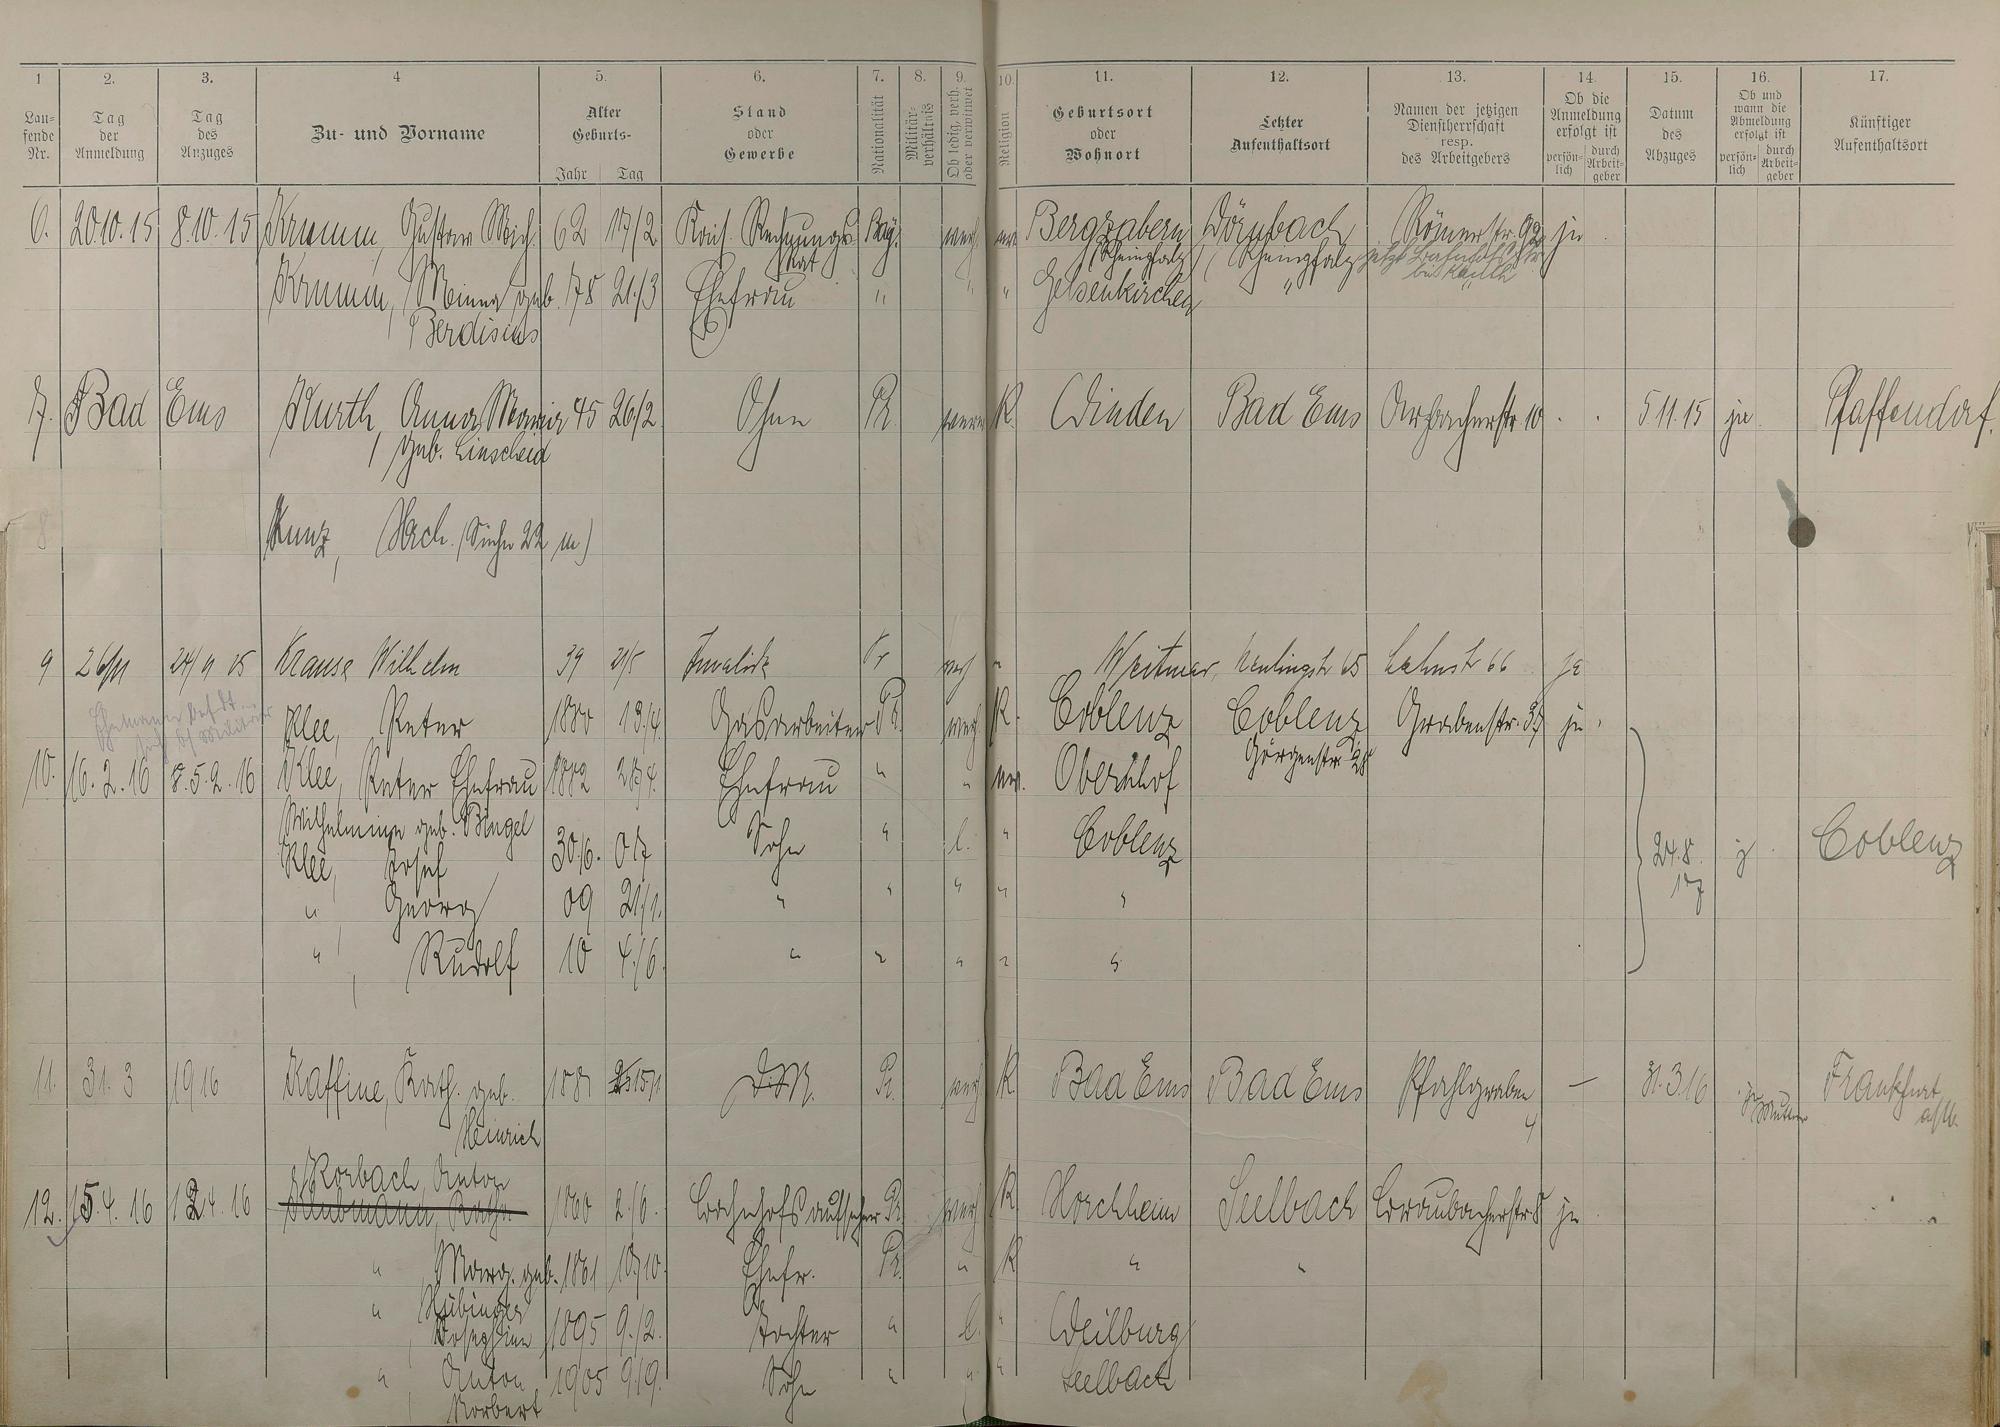 1 2. 3. 4 5. 6. 7. 8. 9. 10. 11. 12. 13. 14. 15. 16. 17.
Lau-
fende
Nr.
Tag
der
Anmeldung
Tag
des
Anzuges
Zu- und Vorname
Alter
Geburts-
Jahr Tag
Stand
oder
Gewerbe
Nationalität
Militär-
verhältnis
Ob ledig, verh.
oder verwitwet
Religion
Geburtsort
oder
Wohnort
Letzter
Aufenthaltsort
Namen der jetzigen
Dienstherrschaft
resp.
des Arbeitgebers
Ob die
Anmeldung
erfolgt ist
persön-
lich
durch
Arbeit-
geber
Datum
des
Abzuges
Ob und
wann die
Abmeldung
erfolgt ist
persön-
lich
durch
Arbeit-
geber
Künftiger
Aufenthaltsort
6. 20.10.15 8.10.15 Krumm, Gustav 62 17/2 Rechnungs Bay. Bergzabern Dörnbach Römerstr. 92 ja
Rat (Rheinpfalz) (Rheinpfalz jetzt
Krumm, Minna geb. 78 21./3 Ehefrau " " " Gelsenkirchen "
Berdisius
7. Bad Ems Kurth, Anna Maria 45 26/2 Ohne Pr. K. Winden Bad Ems Arzbacherstr. 10 5.11.15 ja Pfaffendorf.
geb. Linscheid
8 Kunz, (Siehe 22 m)
9 26/11 24/11 15 Krause Wilhelm 39 21/5 Invalide Pr Weitmar, 65 Lahnstr 66 ja
Klee, Peter 1880 13./4. Gasarbeiter Pr. verh. K. Coblenz Coblenz Grabenstr. 37 ja
Görgenstr. 28
10. 16.2.16 8.5.2.16 Klee, Peter Ehefrau 1882 Ehefrau " " ev. Obernhof
Wilhelmine geb. Bingel
Klee, Josef 30/6. 07 Sohn " l. " Coblenz 24.8. Coblenz
17
" Georg 09 21/1. " " " " "
" Rudolf 10 4./6. " " " " "
11. 31.3 1916 Kaffine, Kath. geb. 15/1. D.M. Pr. verh. K. Bad Ems Bad Ems Pfahlgraben — 31.3.16 Frankfurt
Heinrich 4 Mutter a/M.
Korbach, Anton
12. 15.4.16 12.4.16 1860 2./6. Bahnhofsaufseher Pr. verh. K. Horchheim Seelbach Braubacherstr. 8 ja
" Marg. geb. 1861 10/10. Ehefr. Pr. " K " "
" Hübinger
Josephine 1895 9./2. Tochter " l. " Weilburg
" Anton 1905 9./9. Sohn " " " Seelbach
Norbert